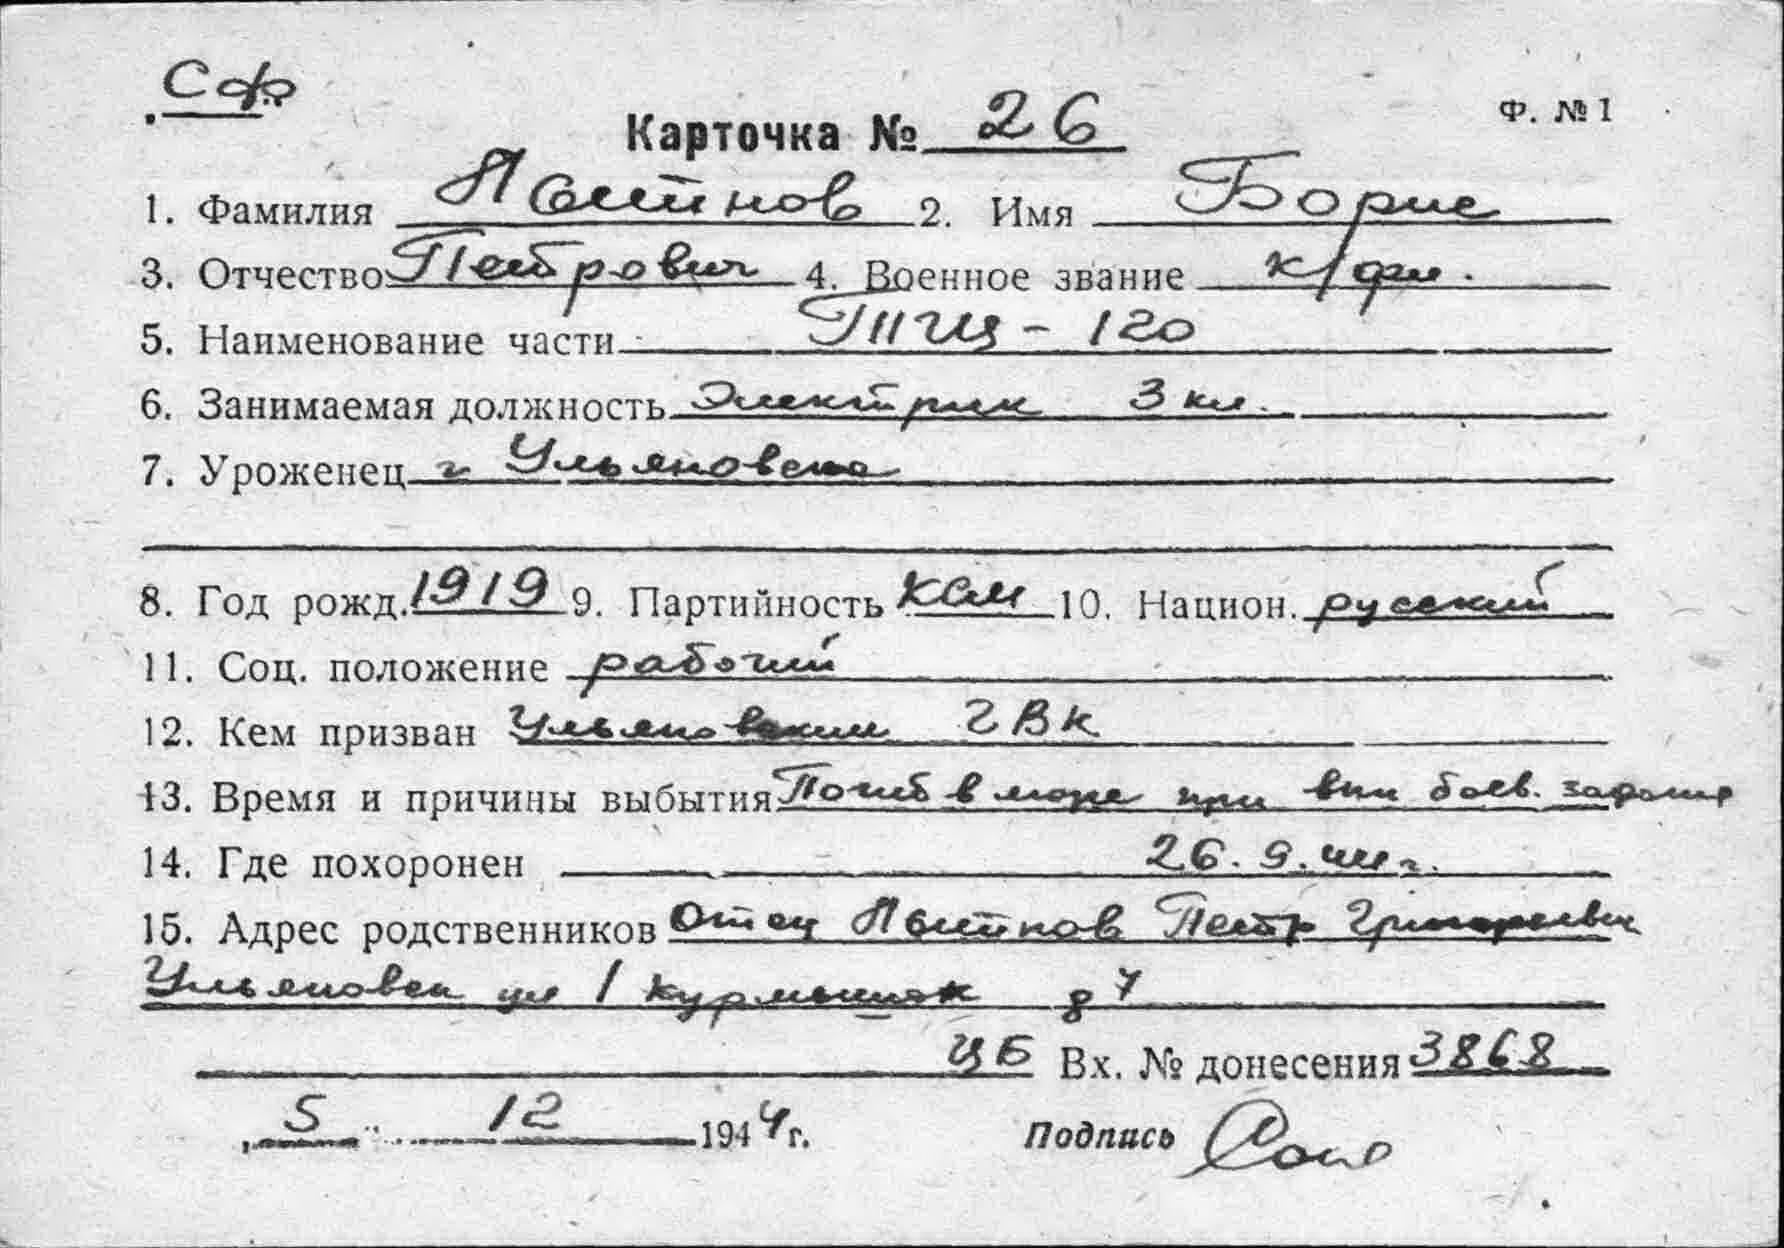 Сф
Карточка № 26
Ф. № 1
1. Фамилия 2. Имя Борис
3. Отчество Петрович 4. Военное звание к/фл.
5. Наименование части ТЩ - 120
6. Занимаемая должность Электрик 3 кл.
7. Уроженец г. Ульяновска
8. Год рожд. 1919 9. Партийность КСМ 10. Национ. русский
11. Соц. положение рабочий
12. Кем призван Ульяновским ГВК
13. Время и причины выбытия Погиб в море при вып боев. задания
14. Где похоронен 26.9.44 г.
15. Адрес родственников Отец Петр Григорьевич
Ульяновск ул 1 д 7
ЦБ Вх. № донесения 3868
5 12 1944 г. Подпись